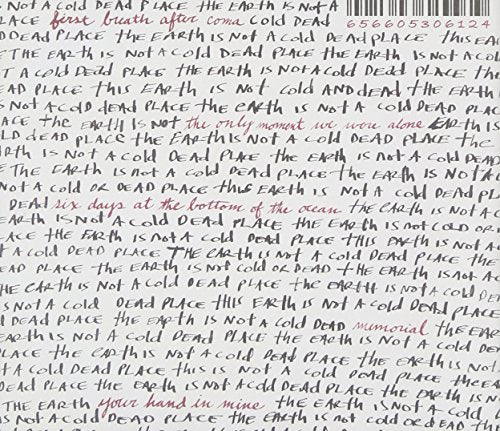 COLD DEAD PLACE THE EARTH IS NOT A
PLACE first breath after coma COLD DEAD 656605306124
DEAD PLACE THE EARTH IS NOT A COLD DEAD PLACE THIS EA
THE EARTH IS NOT A COLD DEAD PLACE THE EARTH IS NOT A COLD
T A COLD DEAD PLACE THE EARTH IS NOT A COLD DEAD PLACE THE
EAD PLACE THIS EARTH IS NOT COLD AND DEAD THE EARTH
S NOT A COLD DEAD PLACE THE EARTH IS NOT A COLD DEAD PLAC
ACE THE EARTH IS NOT the only moment we were alone EARTH IS
LD DEAD PLACE THE EARTH IS NOT A COLD DEAD PLACE THE
RTH IS NOT A COLD DEAD PLACE THE EARTH IS NOT A COLD DEAD
E THE EARTH IS NOT A COLD DEAD PLACE THE EARTH IS NOT A C
NOT A COLD OR DEAD PLACE THIS EARTH IS NOT A COLD DEAD PL
DEAD six days at the bottom of the ocean THE EARTH IS NOT A
EARTH IS NOT A COLD DEAD PLACE THE EARTH IS NOT COLD OR
ACE THE EARTH IS NOT A COLD DEAD PLACE THIS EARTH IS NOT A
T A COLD DEAD PLACE THE EARTH IS NOT A COLD DEAD PLACE THE
EAD PLACE THE EARTH IS NOT COLD OR DEAD THE EARTH IS NOT A
THE EARTH IS NOT A COLD DEAD PLACE THE EARTH IS NOT A COLD
S NOT A COLD DEAD PLACE THIS EARTH IS NOT A COLD DEAD PLACE
DEAD PLACE THE EARTH IS NOT A COLD DEAD memorial THE
EARTH IS NOT A COLD DEAD PLACE THE EARTH IS NOT A COLD DEAD
PLACE THE EARTH IS NOT A COLD DEAD PLACE THE EARTH IS NOT
T A COLD DEAD PLACE THIS IS NOT A COLD DEAD PLACE THE EA
DEAD PLACE THE EARTH IS NOT A COLD DEAD PLACE THE EARTH IS
THE EARTH your hand in mine THE EARTH IS NOT A COLD
IS NOT A COLD DEAD PLACE THE EARTH IS NOT COLD OR DEAD THE